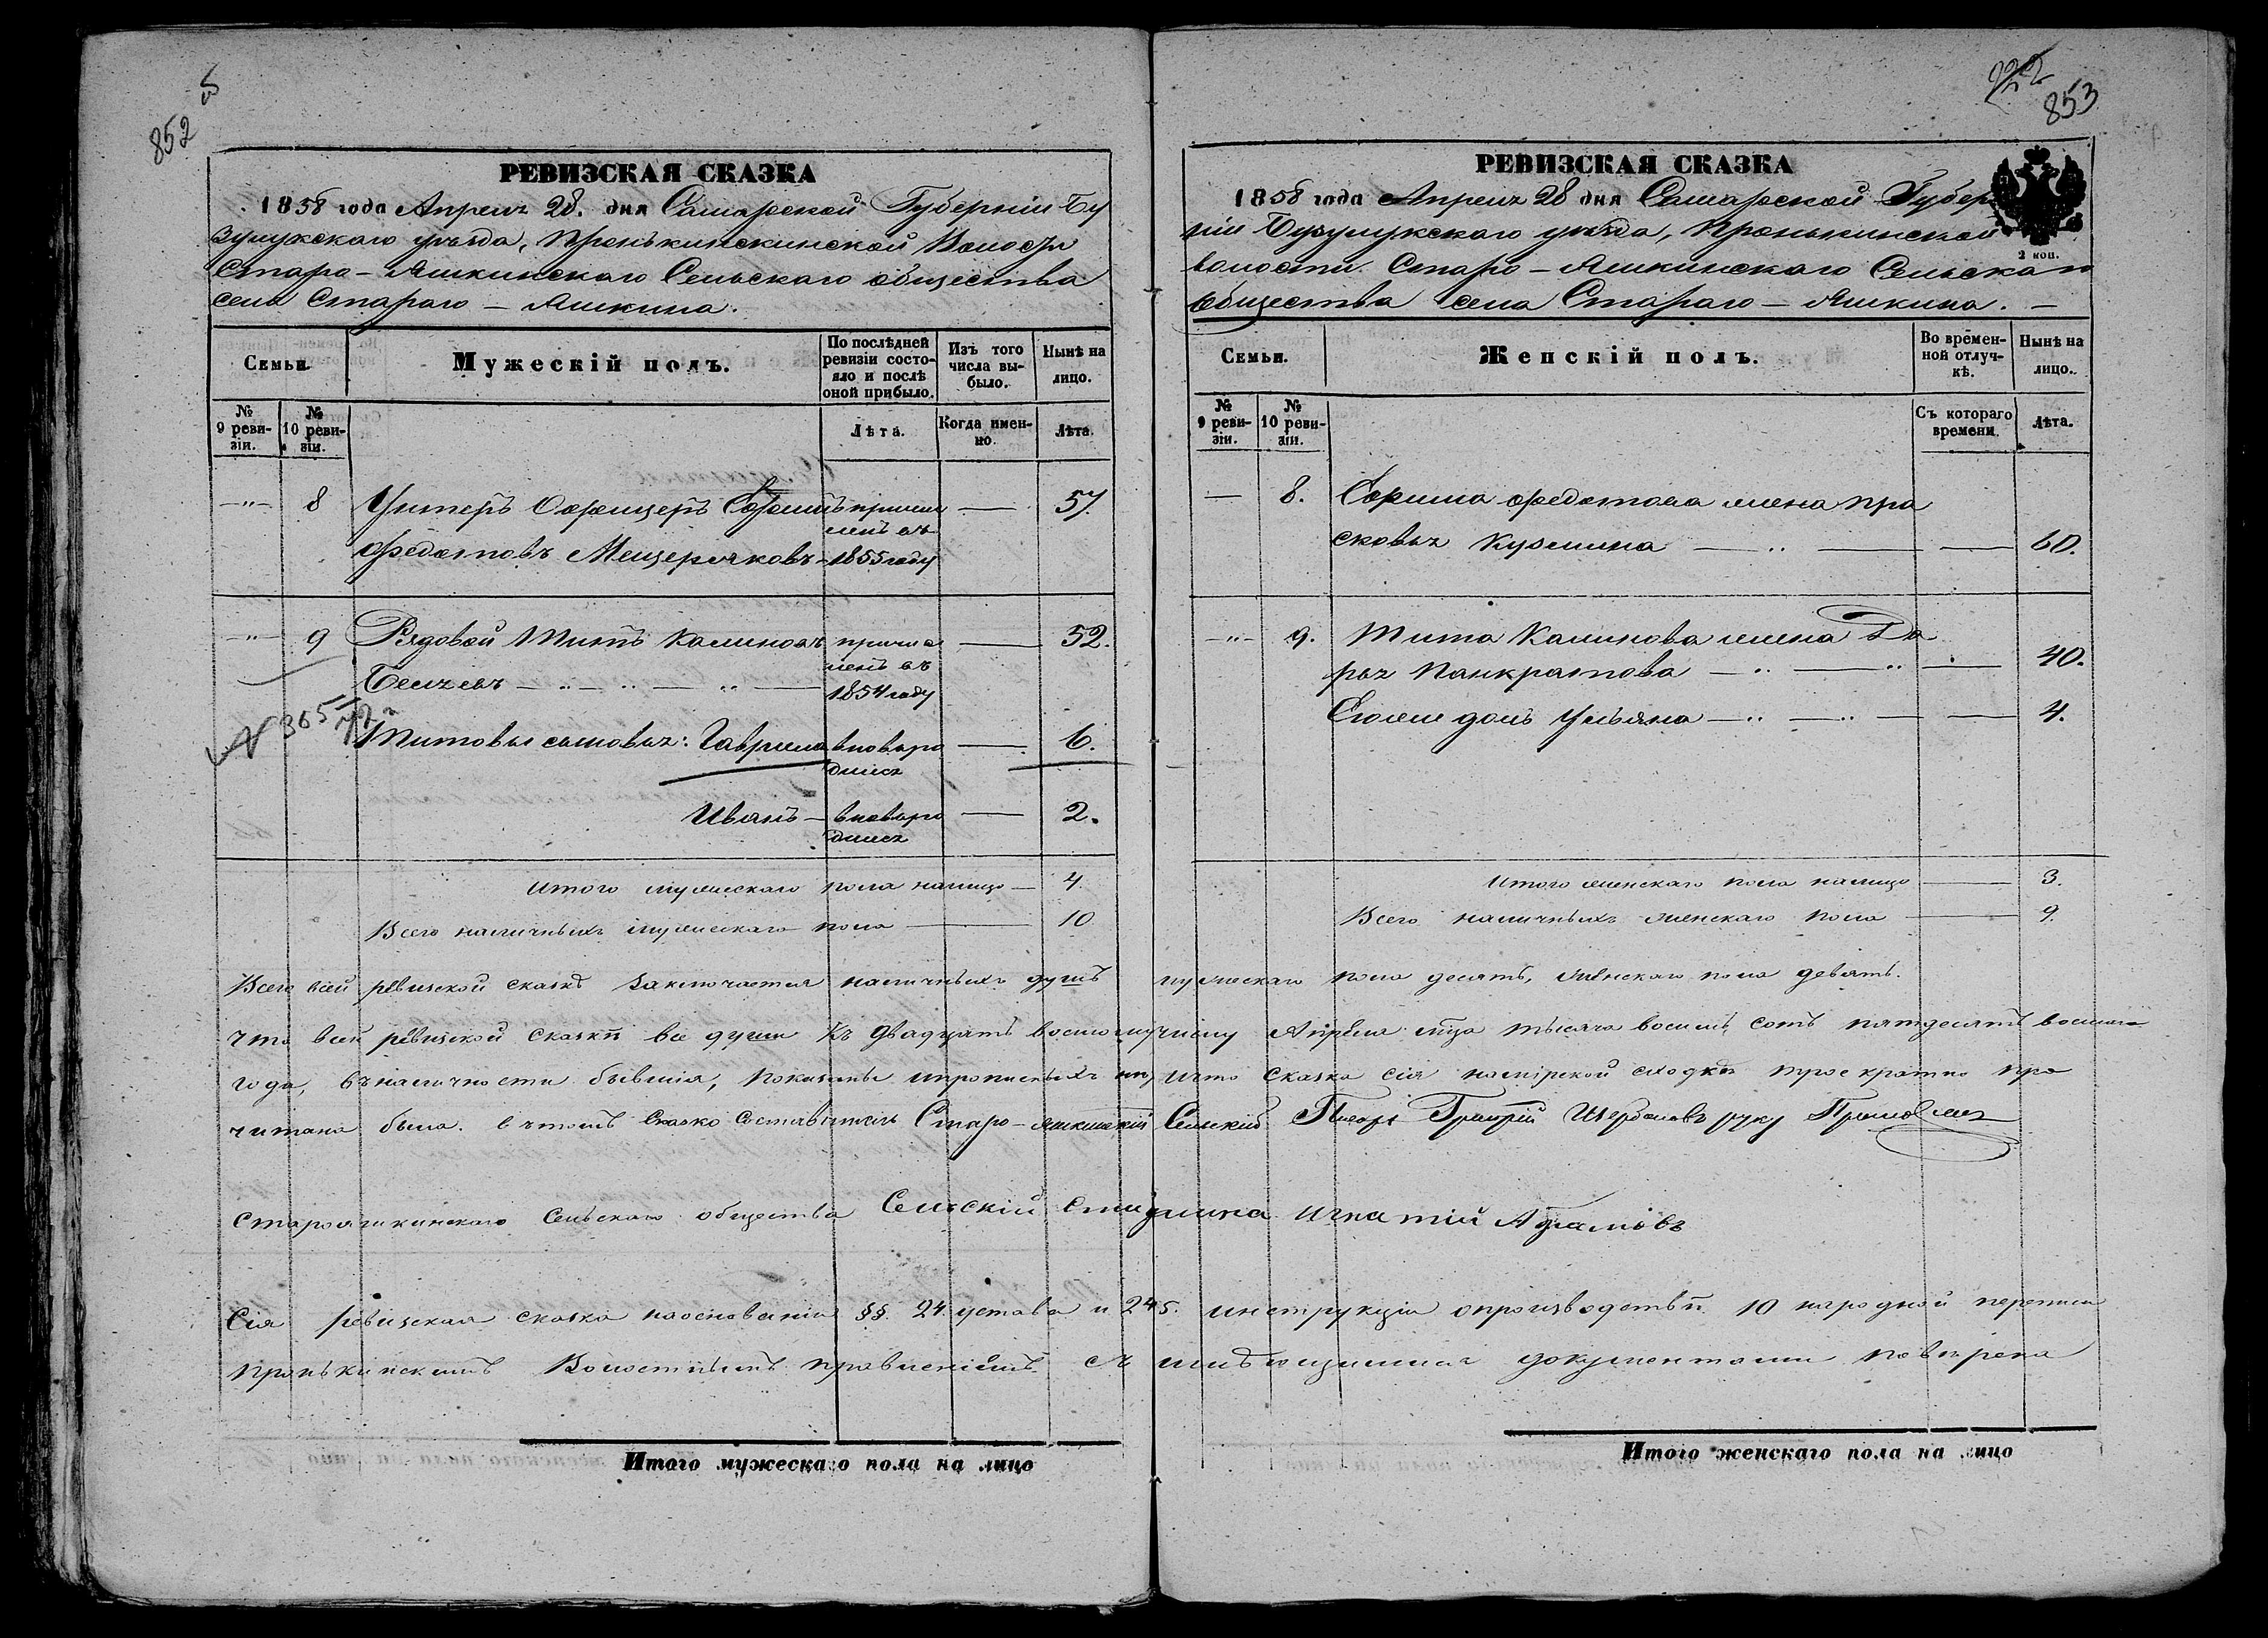 852
5
РЕВИЗСКАЯ СКАЗКА
1858 года Апреля 28. дня Самарской Губерніи Бу
зулукскаго уѣзда, Пронькинскинской Волости
Старо-Яшкинскаго Сельскаго общества
села Стараго-Яшкина.
Семьи.
Мужескій полъ.
По послѣдней ревизіи состояло и послѣ оной прибыло.
Изъ того числа выбыло.
Нынѣ на лицо.
№ 9 ревизіи.
№ 10 ревизіи.
Лѣта.
Когда именно.
Лѣта.
—„— 8 Унтеръ Офицеръ Ефимъ причис — 57.
Федотовъ Мещеряковъ - ленъ въ 1855 году
—„— 9 Рядовой Титъ Калиновъ причис — 52.
Беляевъ — ленъ въ 1854 году
№ 365
Титовы сыновья: Гаврила вновь ро — 6.
дился
Иванъ — вновь ро — 2.
дился
Итого мужескаго пола налицо — 4.
Всего наличныхъ мужескаго пола — 10
222
853
РЕВИЗСКАЯ СКАЗКА
1858 года Апреля 28 дня Самарской Губер
ніи Бузулукскаго уѣзда, Пронькинской
волости Старо-Яшкинскаго Сельскаго
общества села Стараго-Яшкина. —
2 коп.
Семьи.
Женскій полъ.
Во временной отлучкѣ.
Нынѣ на лицо.
№ 9 ревизіи.
№ 10 ревизіи.
Съ котораго времени.
Лѣта.
— 8. Ефима Федотова жена Пра
сковья Кузмина — 60.
—„— 9. Тита Калинова жена Да
рья Панкратова — 40.
Его же дочь Ульяна — 4.
Итого женскаго пола налицо — 3.
Всего наличныхъ женскаго пола — 9.
Всего всей ревизской сказкѣ заключается наличныхъ душъ мужескаго пола десять, женскаго пола девять.
что всей ревизской сказкѣ все души къ двадцать восьмому числу Апреля мца тысяча восемь сотъ пятдесятъ восмаго
года, въ наличности бывшія, показаны и прописныхъ нѣтъ, и что сказка сія на мірской сходкѣ троекратно про
читана была. въ чтомъ сказко составитель Старо-Яшкинскій Сельскій Писарь Григорій Щербаковъ руку Приложилъ
Старояшкинскаго Сельскаго общества Сельскій Старшина Игнатій Абрамовъ
Сія ревизская сказка на основаніи §§. 24. устава и 245. инструкціи о производствѣ 10 народной переписи
Пронькинскимъ Волостнымъ правленіемъ съ имѣющимися документами поверена
Итого мужескаго пола на лицо
Итого женскаго пола на лицо